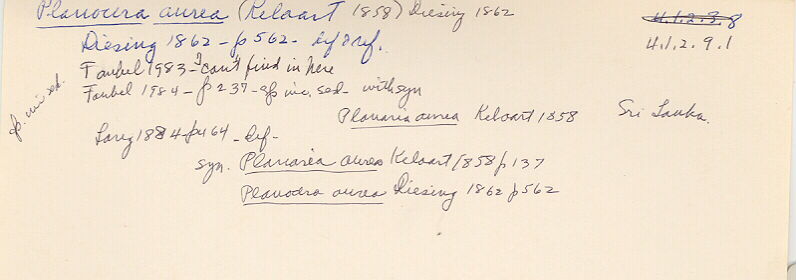 Planocera aurea (Kelaart 1858) Diesing 1862
4.1.2.3.8
Diesing 1862 - p 562 - df & ref.
4.1.2.9.1
Faubel 1983 - I can't find in here
Faubel 1984 - p 237 - sp. inc. sed. with syn
sp. inc. sed.
Planaria aurea Kelaart 1858 Sri Lanka.
Lang 1884 - p 464 - df -
syn. Planaria aurea Kelaart 1858 p 137
Planocera aurea Diesing 1862 p 562